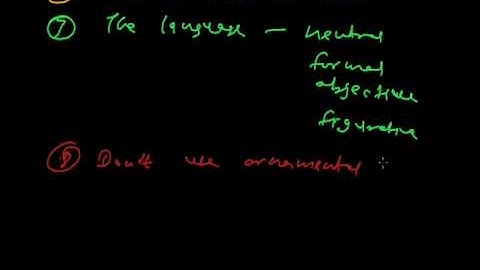 7 The language - neutral
formal
objective
figurative
8 Don't use ornamental